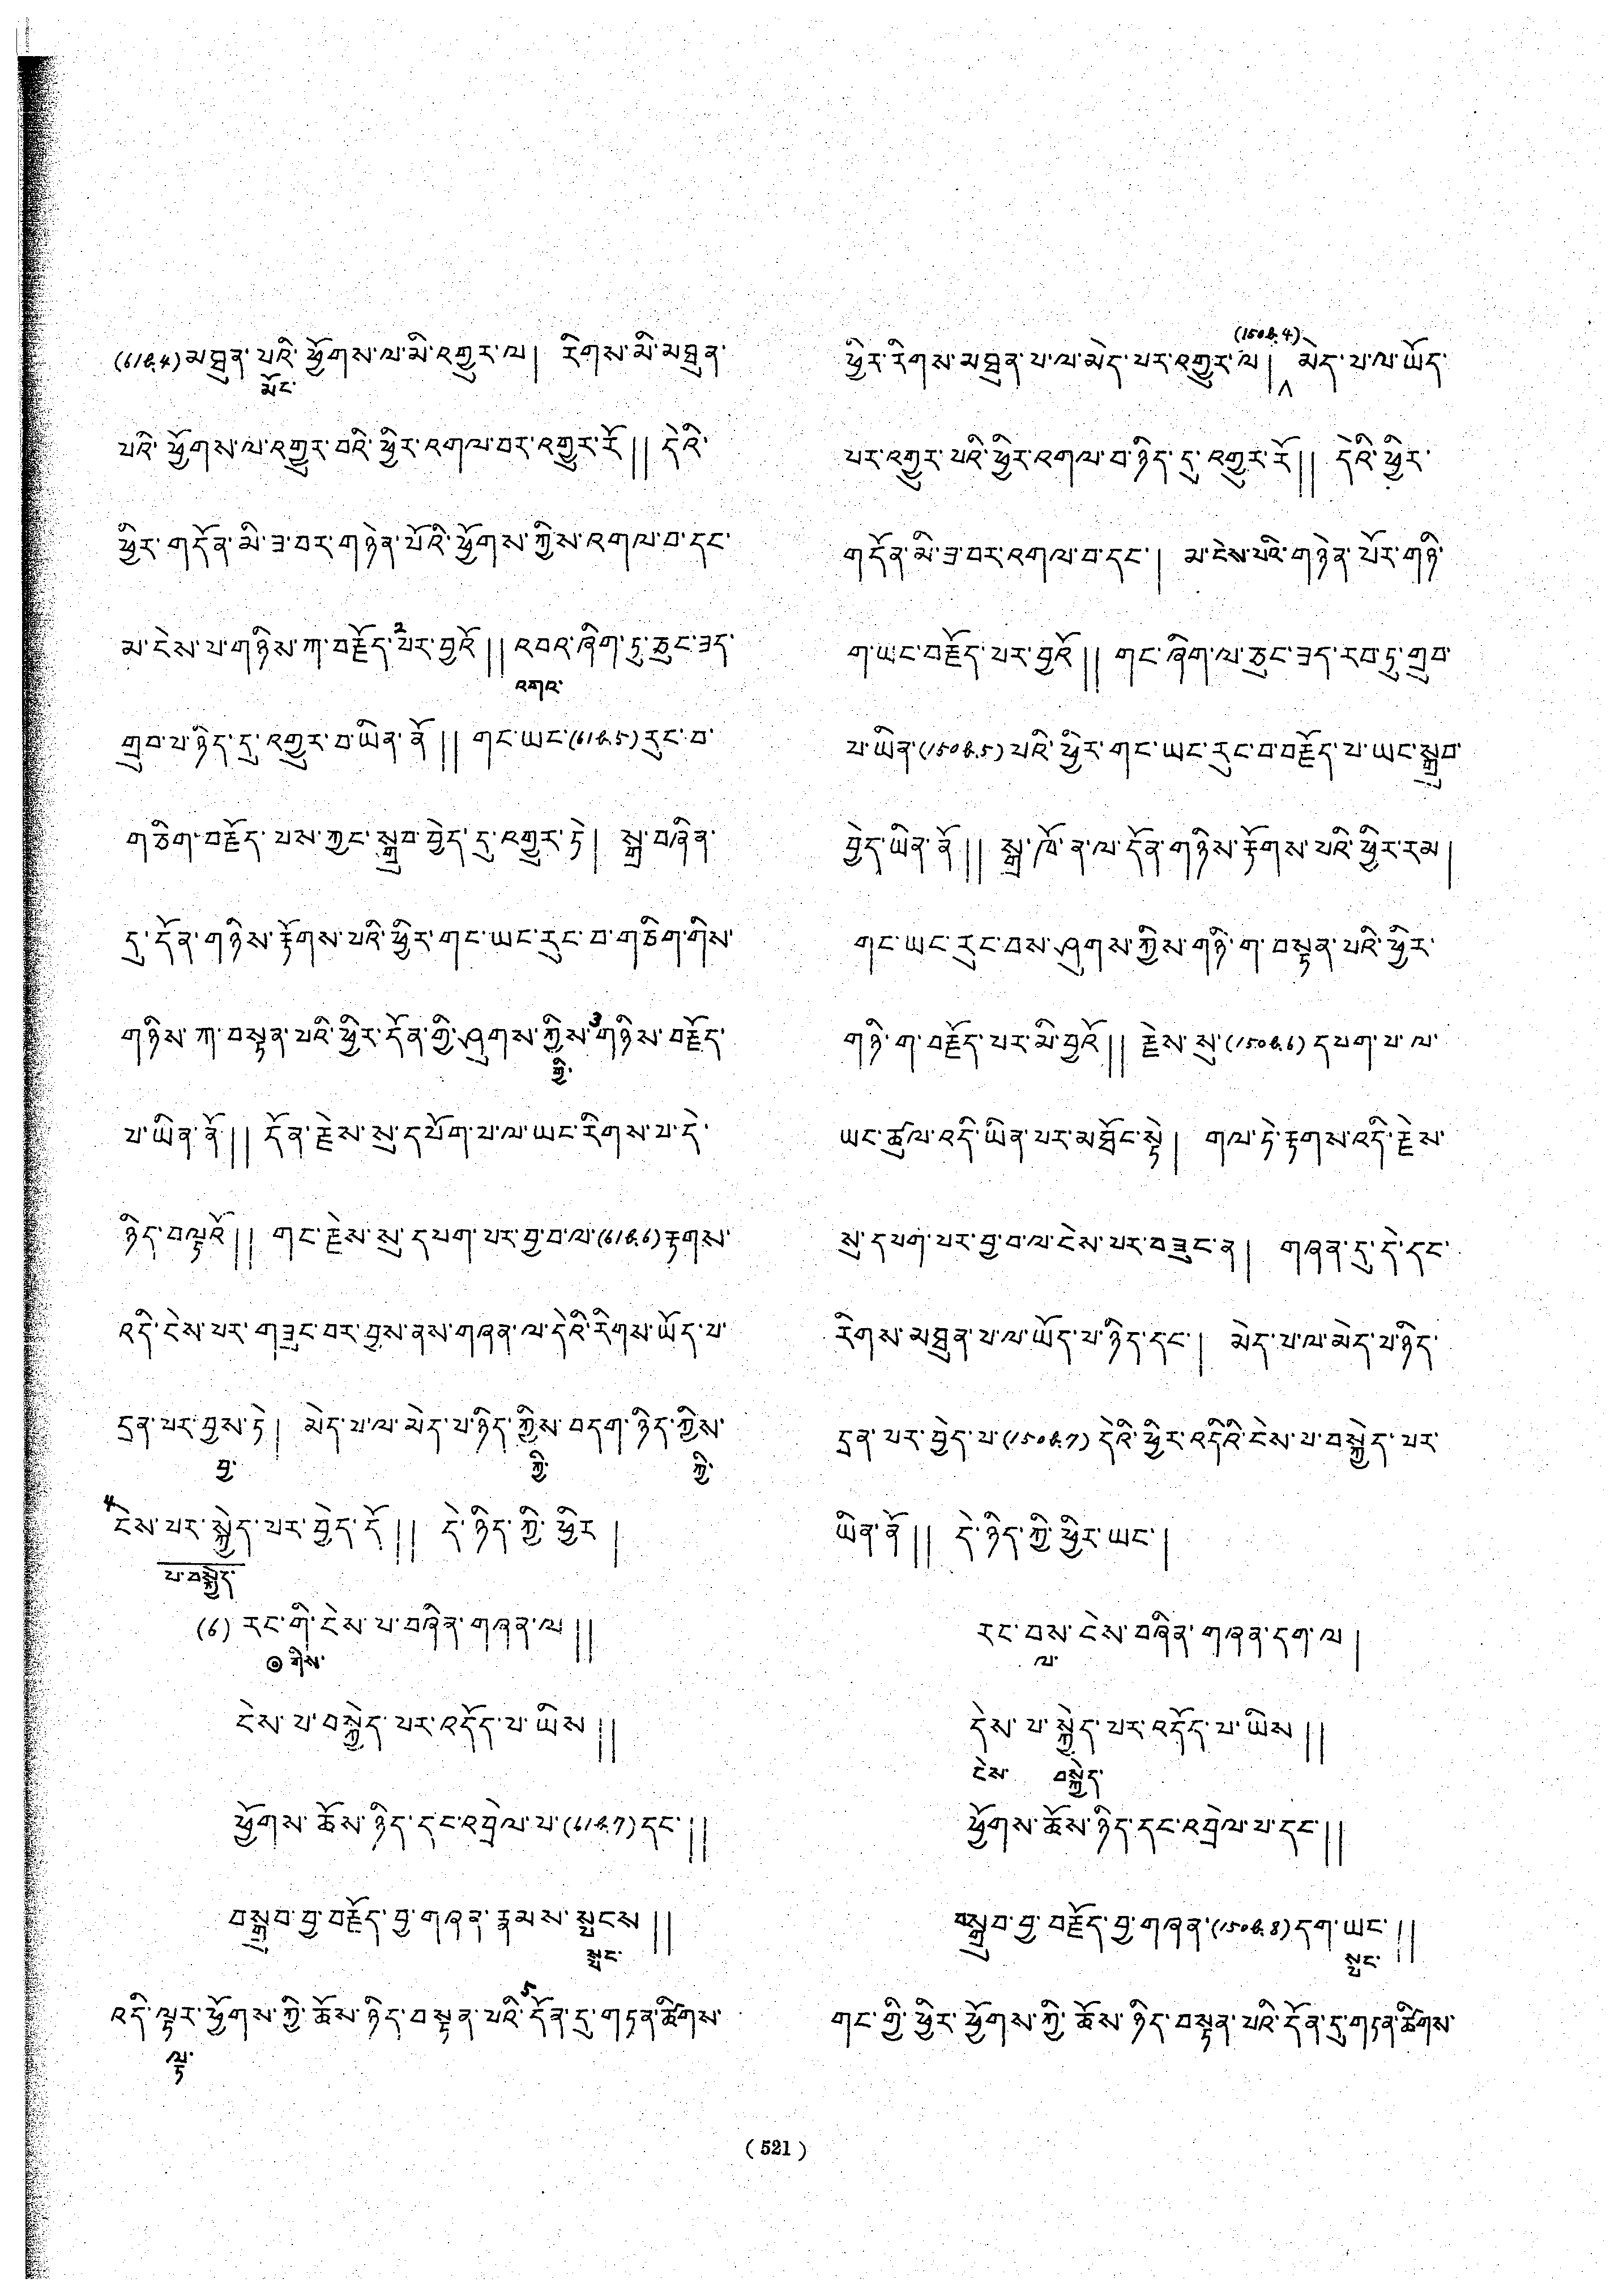 (61b.4) མཐུན་པའི་ཕྱོགས་ལ་མི་འགྱུར་ལ། རིགས་མི་མཐུན་
མོང་
པའི་ཕྱོགས་ལ་འགྱུར་བའི་ཕྱིར་འགལ་བར་འགྱུར་རོ།། དེའི་
ཕྱིར་གདོན་མི་ཟ་བར་གཉེན་པོའི་ཕྱོགས་ཀྱིས་འགལ་བ་དང་
མ་ངེས་པ་གཉིས་ཀ་བརྗོད་2པར་བྱའོ།། འབའ་ཞིག་ཏུ་ཆུང་ཟད་
འགའ་
གྲུབ་པ་ཉིད་དུ་འགྱུར་བ་ཡིན་ནོ།། གང་ཡང་(61b.5)རུང་བ་
གཅིག་བརྗོད་པས་ཀྱང་སྒྲུབ་བྱེད་དུ་འགྱུར་ཏེ། སྒྲ་བཞིན་
དུ་དོན་གཉིས་རྟོགས་པའི་ཕྱིར་གང་ཡང་རུང་བ་གཅིག་གིས་
གཉིས་ཀ་བསྟན་པའི་ཕྱིར་དོན་གྱི་ཤུགས་ཀྱིས་3གཉིས་བརྗོད་
ཀྱི་
པ་ཡིན་ནོ།། དོན་རྗེས་སུ་དཔོག་པ་ལ་ཡང་རིགས་པ་དེ་
ཉིད་བལྟའོ།། གང་རྗེས་སུ་དཔག་པར་བྱ་བ་ལ་(61b.6)རྟགས་
འདི་ངེས་པར་གཟུང་བར་བྱས་ནས་གཞན་ལ་དེའི་རིགས་ཡོད་པ་
དྲན་པར་བྱས་ཏེ། མེད་པ་ལ་མེད་པ་ཉིད་ཀྱིས་བདག་ཉིད་ཀྱིས་
བྱ་ ཀྱི་ ཀྱི་
4ངེས་པར་སྐྱེད་པར་བྱེད་དོ།། དེ་ཉིད་ཀྱི་ཕྱིར།
པ་བསྐྱེད་
(6) རང་གི་ངེས་པ་བཞིན་གཞན་ལ།།
◎ གིས་
ངེས་པ་བསྐྱེད་པར་འདོད་པ་ཡིས།།
ཕྱོགས་ཆོས་ཉིད་དང་འབྲེལ་པ་(61b.7)དང་།།
བསྒྲུབ་བྱ་བརྗོད་བྱ་གཞན་རྣམས་སྤངས།།
སྤང་
འདི་ལྟར་ཕྱོགས་ཀྱི་ཆོས་ཉིད་བསྟན་པའི་5དོན་དུ་གཏན་ཚིགས་
ལྟ་
(150b.4)
ཕྱིར་རིགས་མཐུན་པ་ལ་མེད་པར་འགྱུར་ལ། མེད་པ་ལ་ཡོད་
པར་འགྱུར་པའི་ཕྱིར་འགལ་བ་ཉིད་དུ་འགྱུར་རོ།། དེའི་ཕྱིར་
གདོན་མི་ཟ་བར་འགལ་བ་དང་། མ་ངེས་པའི་གཉེན་པོར་གཉི་
ག་ཡང་བརྗོད་པར་བྱའོ།། གང་ཞིག་ལ་ཆུང་ཟད་རབ་ཏུ་གྲུབ་
པ་ཡིན་(150b.5)པའི་ཕྱིར་གང་ཡང་རུང་བ་བརྗོད་པ་ཡང་སྒྲུབ་
བྱེད་ཡིན་ནོ།། སྒྲ་ཁོ་ན་ལ་དོན་གཉིས་རྟོགས་པའི་ཕྱིར་རམ།
གང་ཡང་རུང་བས་ཤུགས་ཀྱིས་གཉི་ག་བསྟན་པའི་ཕྱིར་
གཉི་ག་བརྗོད་པར་མི་བྱའོ།། རྗེས་སུ་(150b.6)དཔག་པ་ལ་
ཡང་ཚུལ་འདི་ཡིན་པར་མཐོང་སྟེ། གལ་ཏེ་རྟགས་འདི་རྗེས་
སུ་དཔག་པར་བྱ་བ་ལ་ངེས་པར་བཟུང་ན། གཞན་དུ་དེ་དང་
རིགས་མཐུན་པ་ལ་ཡོད་པ་ཉིད་དང་། མེད་པ་ལ་མེད་པ་ཉིད་
དྲན་པར་བྱེད་པ་(150b.7)དེའི་ཕྱིར་འདིའི་ངེས་པ་བསྐྱེད་པར་
ཡིན་ནོ།། དེ་ཉིད་ཀྱི་ཕྱིར་ཡང་།
རང་བས་ངེས་བཞིན་གཞན་དག་ལ།
ལ་
དེས་པ་སྐྱེད་པར་འདོད་པ་ཡིས།།
ངེས་ བསྐྱེད་
ཕྱོགས་ཆོས་ཉིད་དང་འབྲེལ་པ་དང་།།
བསྒྲུབ་བྱ་བརྗོད་བྱ་གཞན་(150b.8)དག་ཡང་།།
སྤང་
གང་གྱི་ཕྱིར་ཕྱོགས་ཀྱི་ཆོས་ཉིད་བསྟན་པའི་དོན་དུ་གཏན་ཚིགས་
(521)